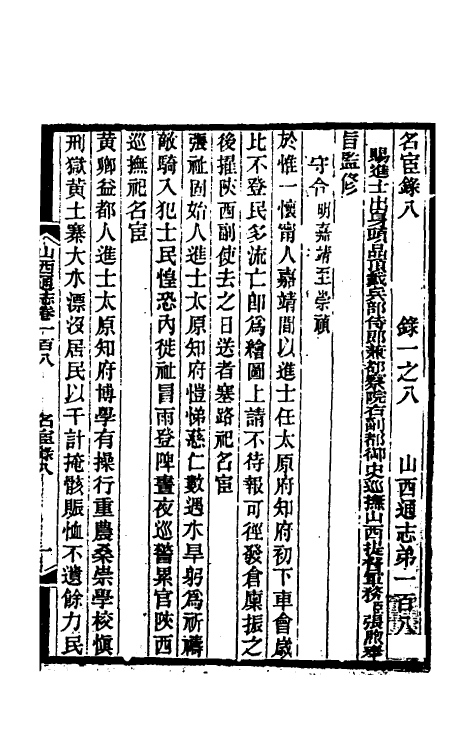 名宦錄八　錄一之八　山西通志弟一百八
賜進士出身頭品頂戴兵部侍郎兼都察院右副都御史巡撫山西提督軍務臣張煦奉
旨監修
守令 明嘉靖至崇禎
於惟一懷甯人嘉靖間以進士任太原府知府初下車會歲
比不登民多流亡卽爲繪圖上請不待報可徑發倉廩振之
後擢陝西副使去之日送者塞路祀名宦
張祉固始人進士太原知府愷悌慈仁數遇水旱躬爲祈禱
敵騎入犯士民惶恐內徙祉冒雨登陴晝夜巡警累官陝西
巡撫祀名宦
黃卿益都人進士太原知府博學有操行重農桑崇學校愼
刑獄黃土寨大水漂沒居民以千計掩骸賑恤不遺餘力民
山西通志卷一百八　名宦錄八　一